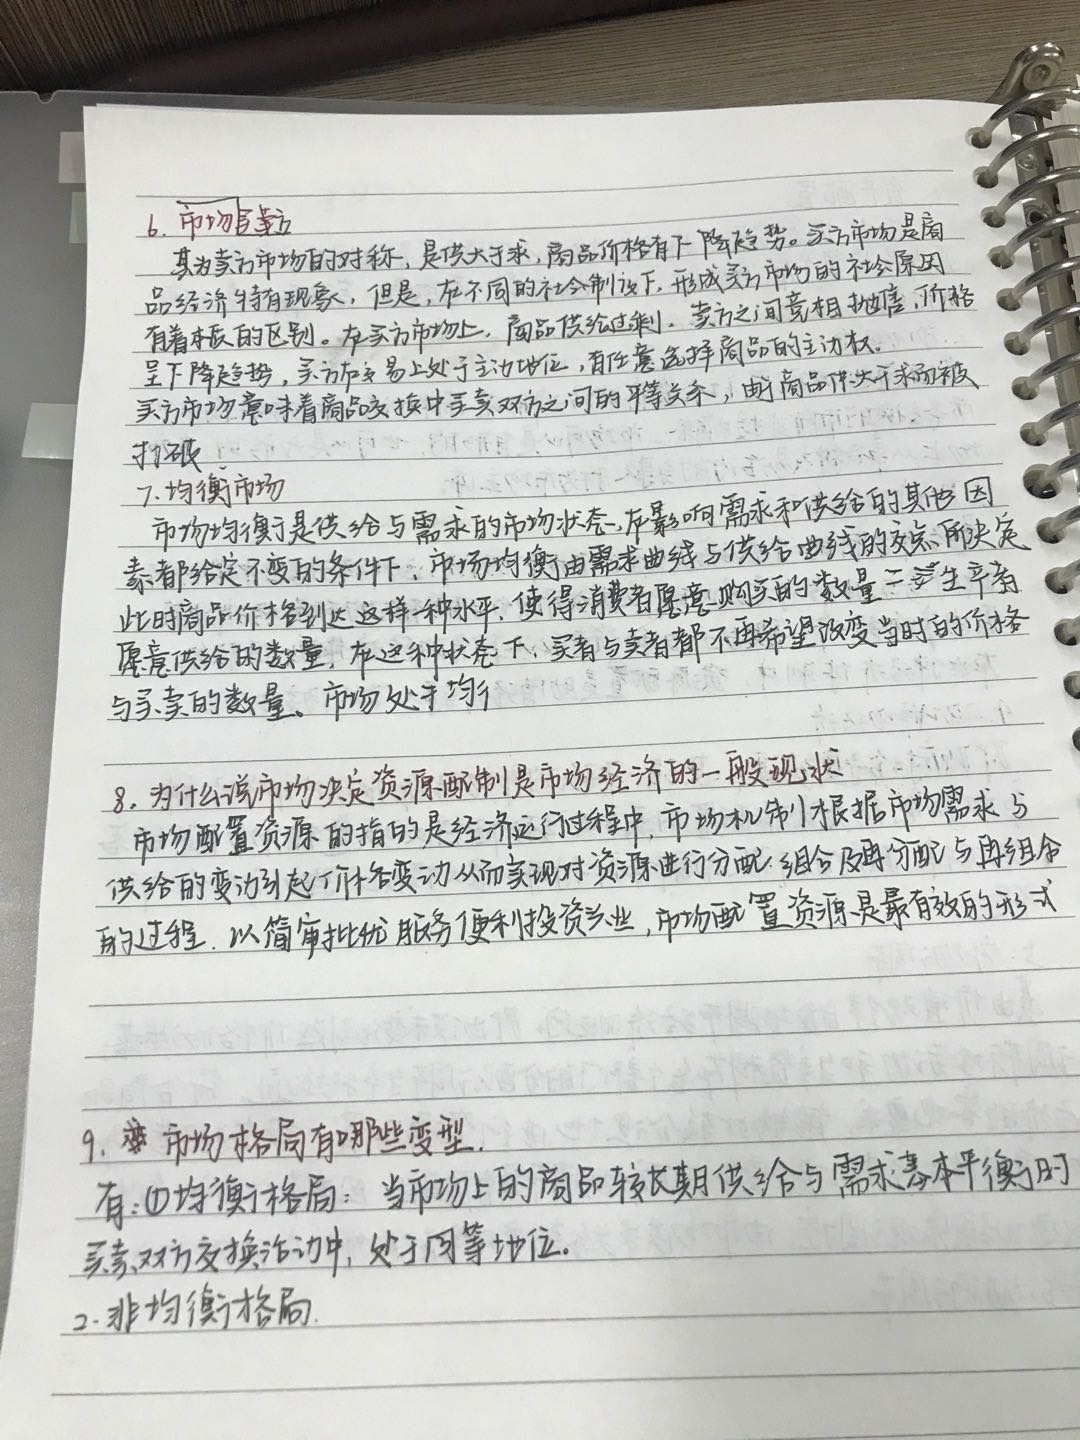 6. 市场
其为卖方市场的对称，是供大于求，商品价格有下降趋势。买方市场是商
品经济特有现象，但是，在不同的社会制设下，形成买方市场的社会原因
有着本质的区别。在买方市场上，商品供给过剩，卖方之间竞相抛售，价格
呈下降趋势，买方在交易上处于主动地位，有任意选择商品的主动权。
买方市场意味着商品交换中买卖双方之间的平等关系，由于商品供大于求而被
打破
7. 均衡市场
市场均衡是供给与需求的市场状态、在影响需求和供给的其他因
素都给定不变的条件下，市场均衡由需求曲线与供给曲线的交点所决定
此时商品价格到达这样一种水平，使得消费者愿意购买的数量=生产者
愿意供给的数量，在这种状态下，买者与卖者都不再希望改变当时的价格
与买卖的数量、市场处于均行
8. 为什么说市场决定资源配制是市场经济的一般现状
市场配置资源的指的是经济运行过程中，市场机制根据市场需求与
供给的变动引起价格变动从而实现对资源进行分配、组合及再分配与再组合
的过程，以简审批优服务便利投资兴业，市场配置资源是最有效的形式
9. 市场格局有哪些变型.
有：①均衡格局：当市场上的商品较长期供给与需求基本平衡时
买卖双方交换活动中，处于同等地位。
2. 非均衡格局.